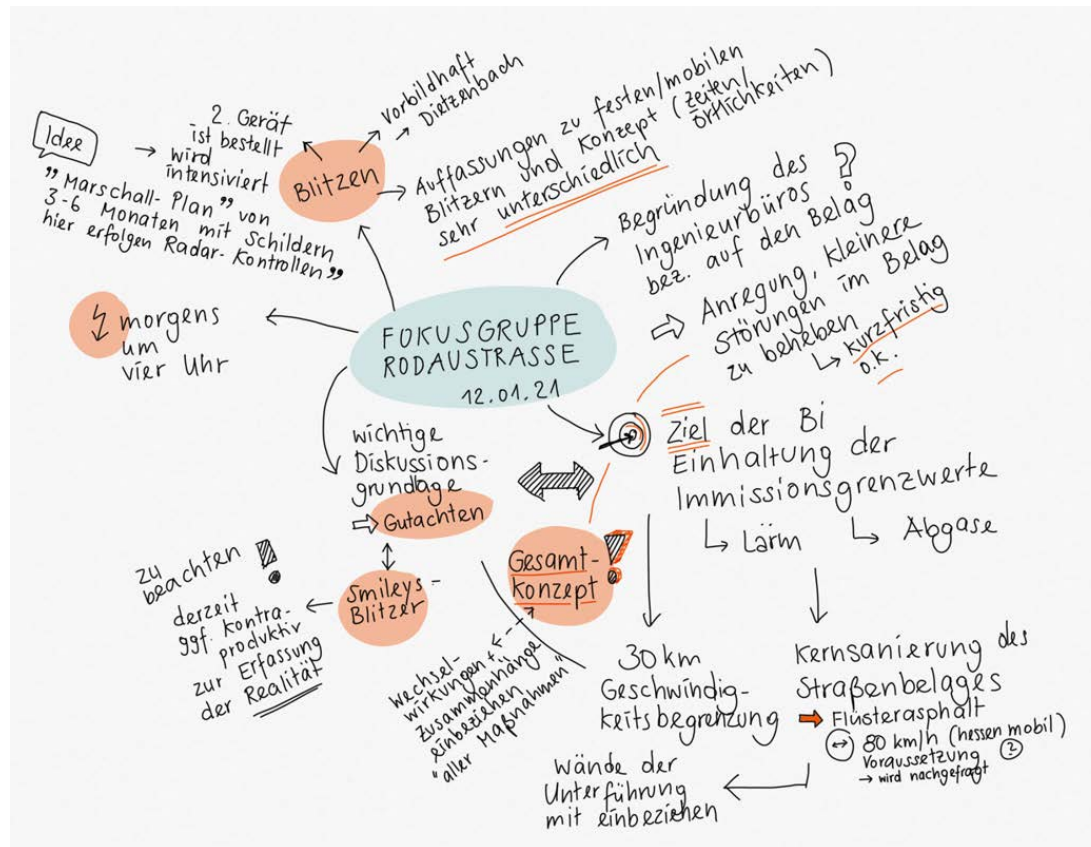 FOKUSGRUPPE
RODAUSTRASSE
12.01.21
Blitzen
2. Gerät
ist bestellt
→ wird
intensiviert
Idee
"Marschall-Plan" von
3-6 Monaten mit Schildern
hier erfolgen Radar-Kontrollen"
vorbildhaft
→ Dietzenbach
Auffassungen zu festen/mobilen
Blitzern und Konzept (zeiten/
örtlichkeiten)
sehr unterschiedlich
Begründung des ?
Ingenieurbüros
bez. auf den Belag
Anregung, kleinere
Störungen im Belag
zu beheben
↳ kurzfristig
o.k.
morgens
um
vier Uhr
wichtige
Diskussions-
grundlage
Gutachten
Smileys-
Blitzer
zu
beachten !
derzeit
ggf. kontra-
produktiv
zur Erfassung
der Realität
Gesamt-
konzept !
wechsel-
wirkungen +
zusammenhänge
einbeziehen
"aller Maßnahmen"
Ziel der Bi
Einhaltung der
Immissionsgrenzwerte
↳ Lärm
↳ Abgase
30 km
Geschwindig-
keitsbegrenzung
Kernsanierung des
Straßenbelages
→ Flüsterasphalt
↔ 80 km/h (hessen mobil)
Voraussetzung ?
→ wird nachgefragt
Wände der
Unterführung
mit einbeziehen